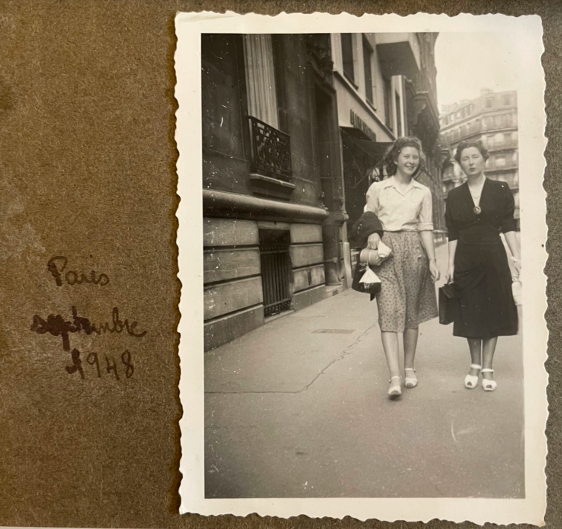 Paris
septembre
1948